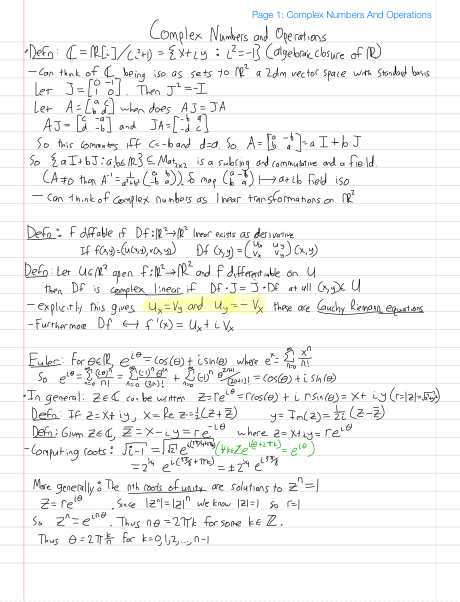 Page 1: Complex Numbers And Operations
Complex Numbers and Operations
• Defn: ℂ = ℝ[i]/(i²+1) = {x+iy : i²=-1} (algebraic closure of ℝ)
- Can think of ℂ being iso as sets to ℝ² a 2dm vector space with standard basis
Let J = [0 -1; 1 0]. Then J² = -I
Let A = [a c; b d] when does AJ = JA
AJ = [c -a; d -b] and JA = [-b -d; a c]
So this commutes iff c=-b and d=a. So A = [a -b; b a] = aI + bJ
So {aI+bJ : a,b∈ℝ} ⊆ Mat₂ₓ₂ is a subring and commutative and a field.
(A≠0 then A⁻¹ = 1/(a²+b²) (a b; -b a)) & map (a -b; b a) ↦ a+ib field iso
- Can think of complex numbers as linear transformations on ℝ²
Defn: f diffable if Df: ℝ²→ℝ² linear exists as derivative
If f(x,y)=(u(x,y),v(x,y)) Df(x,y) = (Ux Uy; Vx Vy)(x,y)
Defn: Let U⊆ℝ² open f: ℝ²→ℝ² and f differentiable on U
then Df is complex linear if Df·J = J·Df at all (x,y)∈U
- explicitly this gives Ux=Vy and Uy=-Vx these are Cauchy Riemann equations
- Furthermore Df ↔ f'(x) = Ux + iVx
Euler: For θ∈ℝ, e^{iθ} = cos(θ) + i sin(θ) where e^x = Σ_{n=0}^∞ x^n/n!
So e^{iθ} = Σ_{n=0}^∞ (iθ)^n/n! = Σ_{n=0}^∞ (-1)^n θ^{2n}/(2n)! + Σ_{n=0}^∞ (-1)^n θ^{2n+1}/(2n+1)! = cos(θ) + i sin(θ)
• In general: z∈ℂ can be written z = re^{iθ} = r cos(θ) + i r sin(θ) = x + iy (r=|z|=√(x²+y²))
Defn: If z = x+iy, x = Re z = 1/2(z+z̄) y = Im(z) = 1/2i (z-z̄)
Defn: Given z∈ℂ, z̄ = x-iy = re^{-iθ} where z = x+iy = re^{iθ}
- Computing roots: √(i-1) = (∀k∈ℤ e^{i(θ+2πk)} = e^{iθ})
More generally: The nth roots of unity are solutions to z^n = 1
z = re^{iθ}. Since |z^n| = |z|^n we know |z|=1 so r=1
So z^n = e^{inθ}. Thus nθ = 2πk for some k∈ℤ.
Thus θ = 2π k/n for k=0,1,2,...,n-1